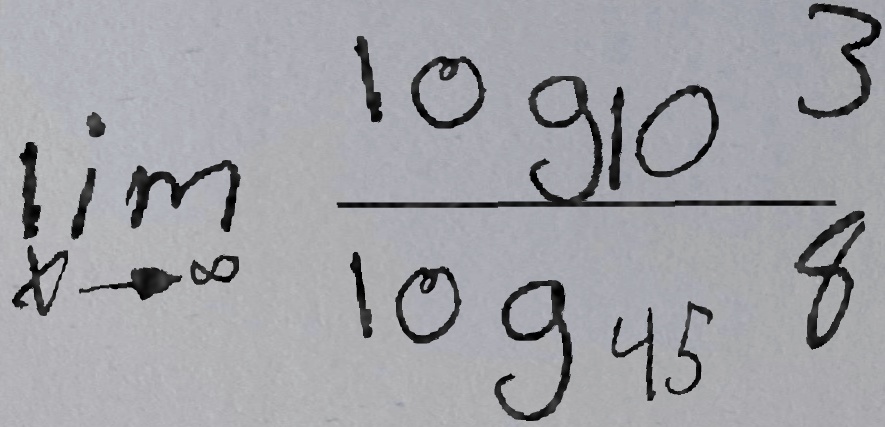 lim x→∞ log₁₀ 3 / log₄₅ 8